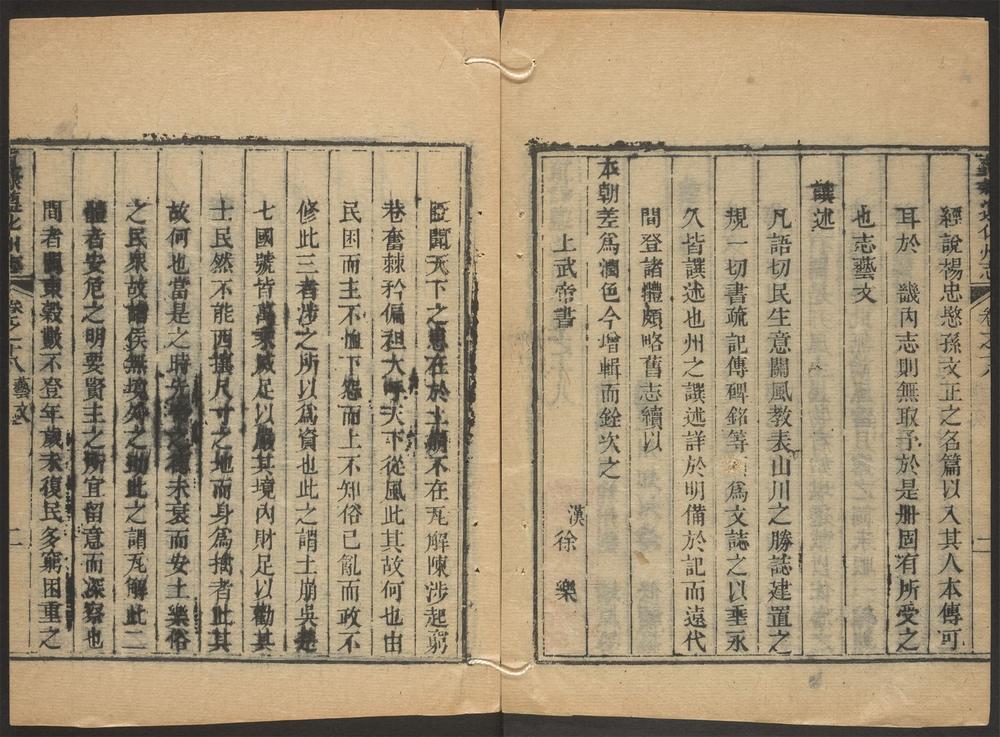 經說楊忠愍孫文正之名篇以入其人本傳可
耳於 畿內志則無取予於是册固有所受之
也志藝文
譔述
凡語切民生意關風教表山川之勝誌建置之
規一切書疏記傳碑銘等 爲文誌之以垂永
久皆譔述也州之譔述詳於明備於記而遠代
間登諸體頗略舊志續以
本朝差爲潤色今增輯而銓次之
上武帝書 漢徐 樂
臣聞天下之患在於土崩不在瓦解陳涉起窮
巷奮棘矜偏袒大呼天下從風此其故何也由
民困而主不恤下怨而上不知俗已亂而政不
修此三者涉之所以爲資也此之謂土崩吳楚
七國號皆萬乘威足以嚴其境內財足以勸其
士民然不能西攘尺寸之地而身爲擒者此其
故何也當是之時先 之德未衰而安土樂俗
之民衆故諸侯無境外之助此之謂瓦解此二
體者安危之明要賢主之所宜留意而深察也
間者關東穀數不登年歲未復民多窮困重之
藝文
二